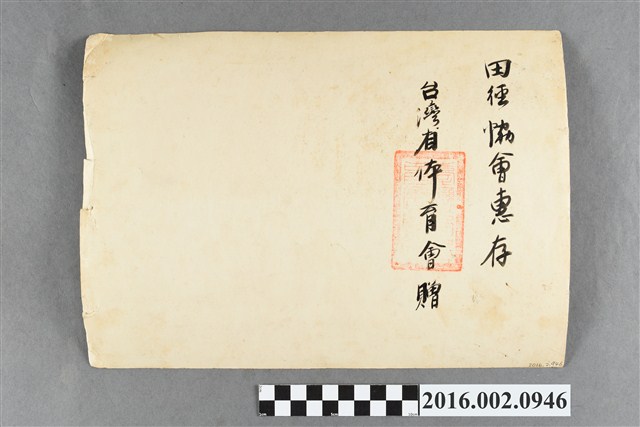 田徑協會惠存
台灣省体育會贈
2016.002.0946